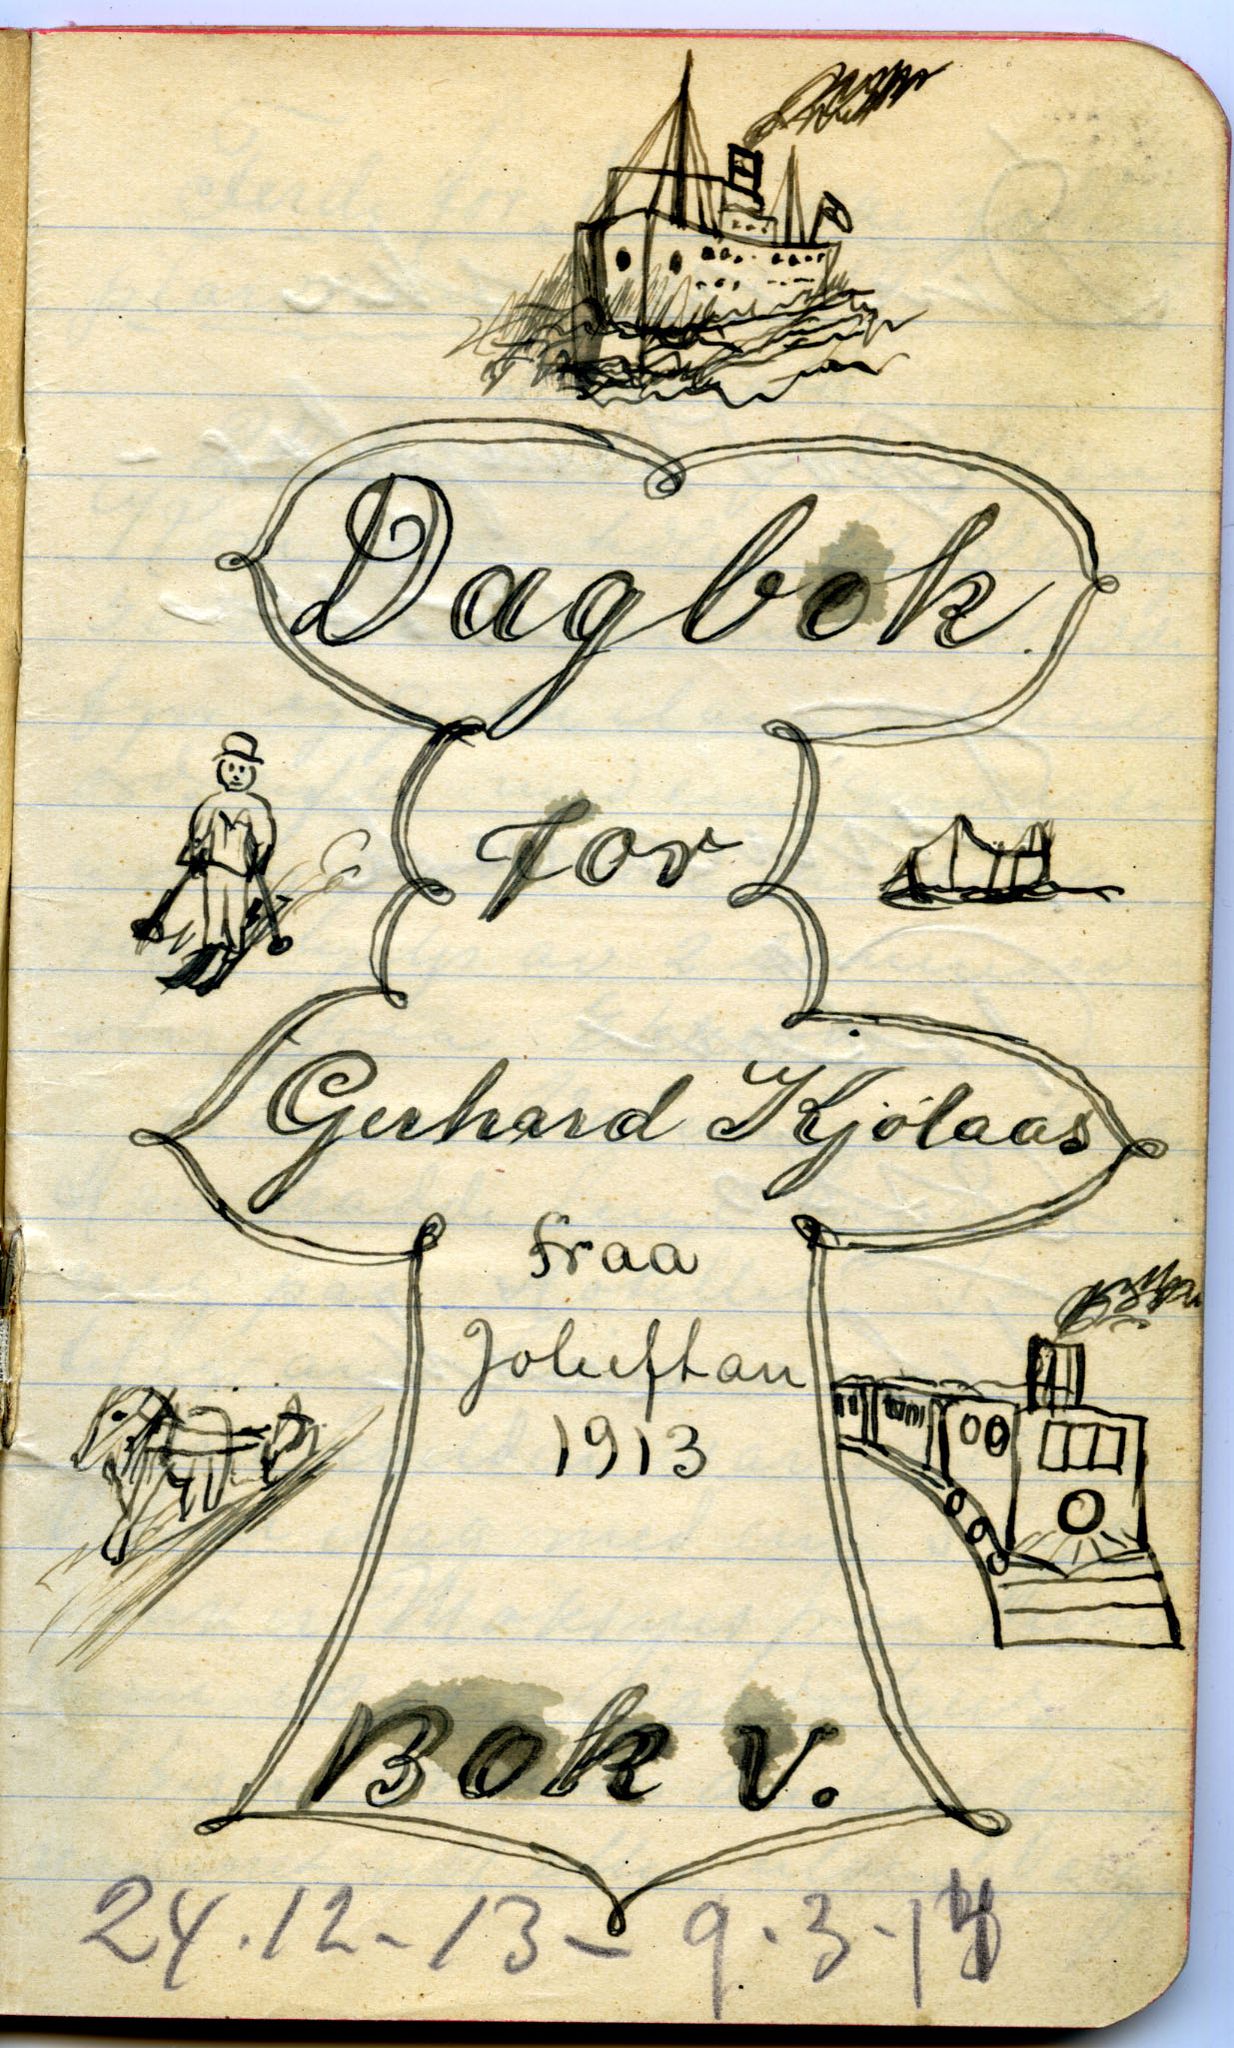 Dagbok
for
Gerhard Kjølaas
fraa
Joleftan
1913
Bok V.
24.12-13- 9.3-14